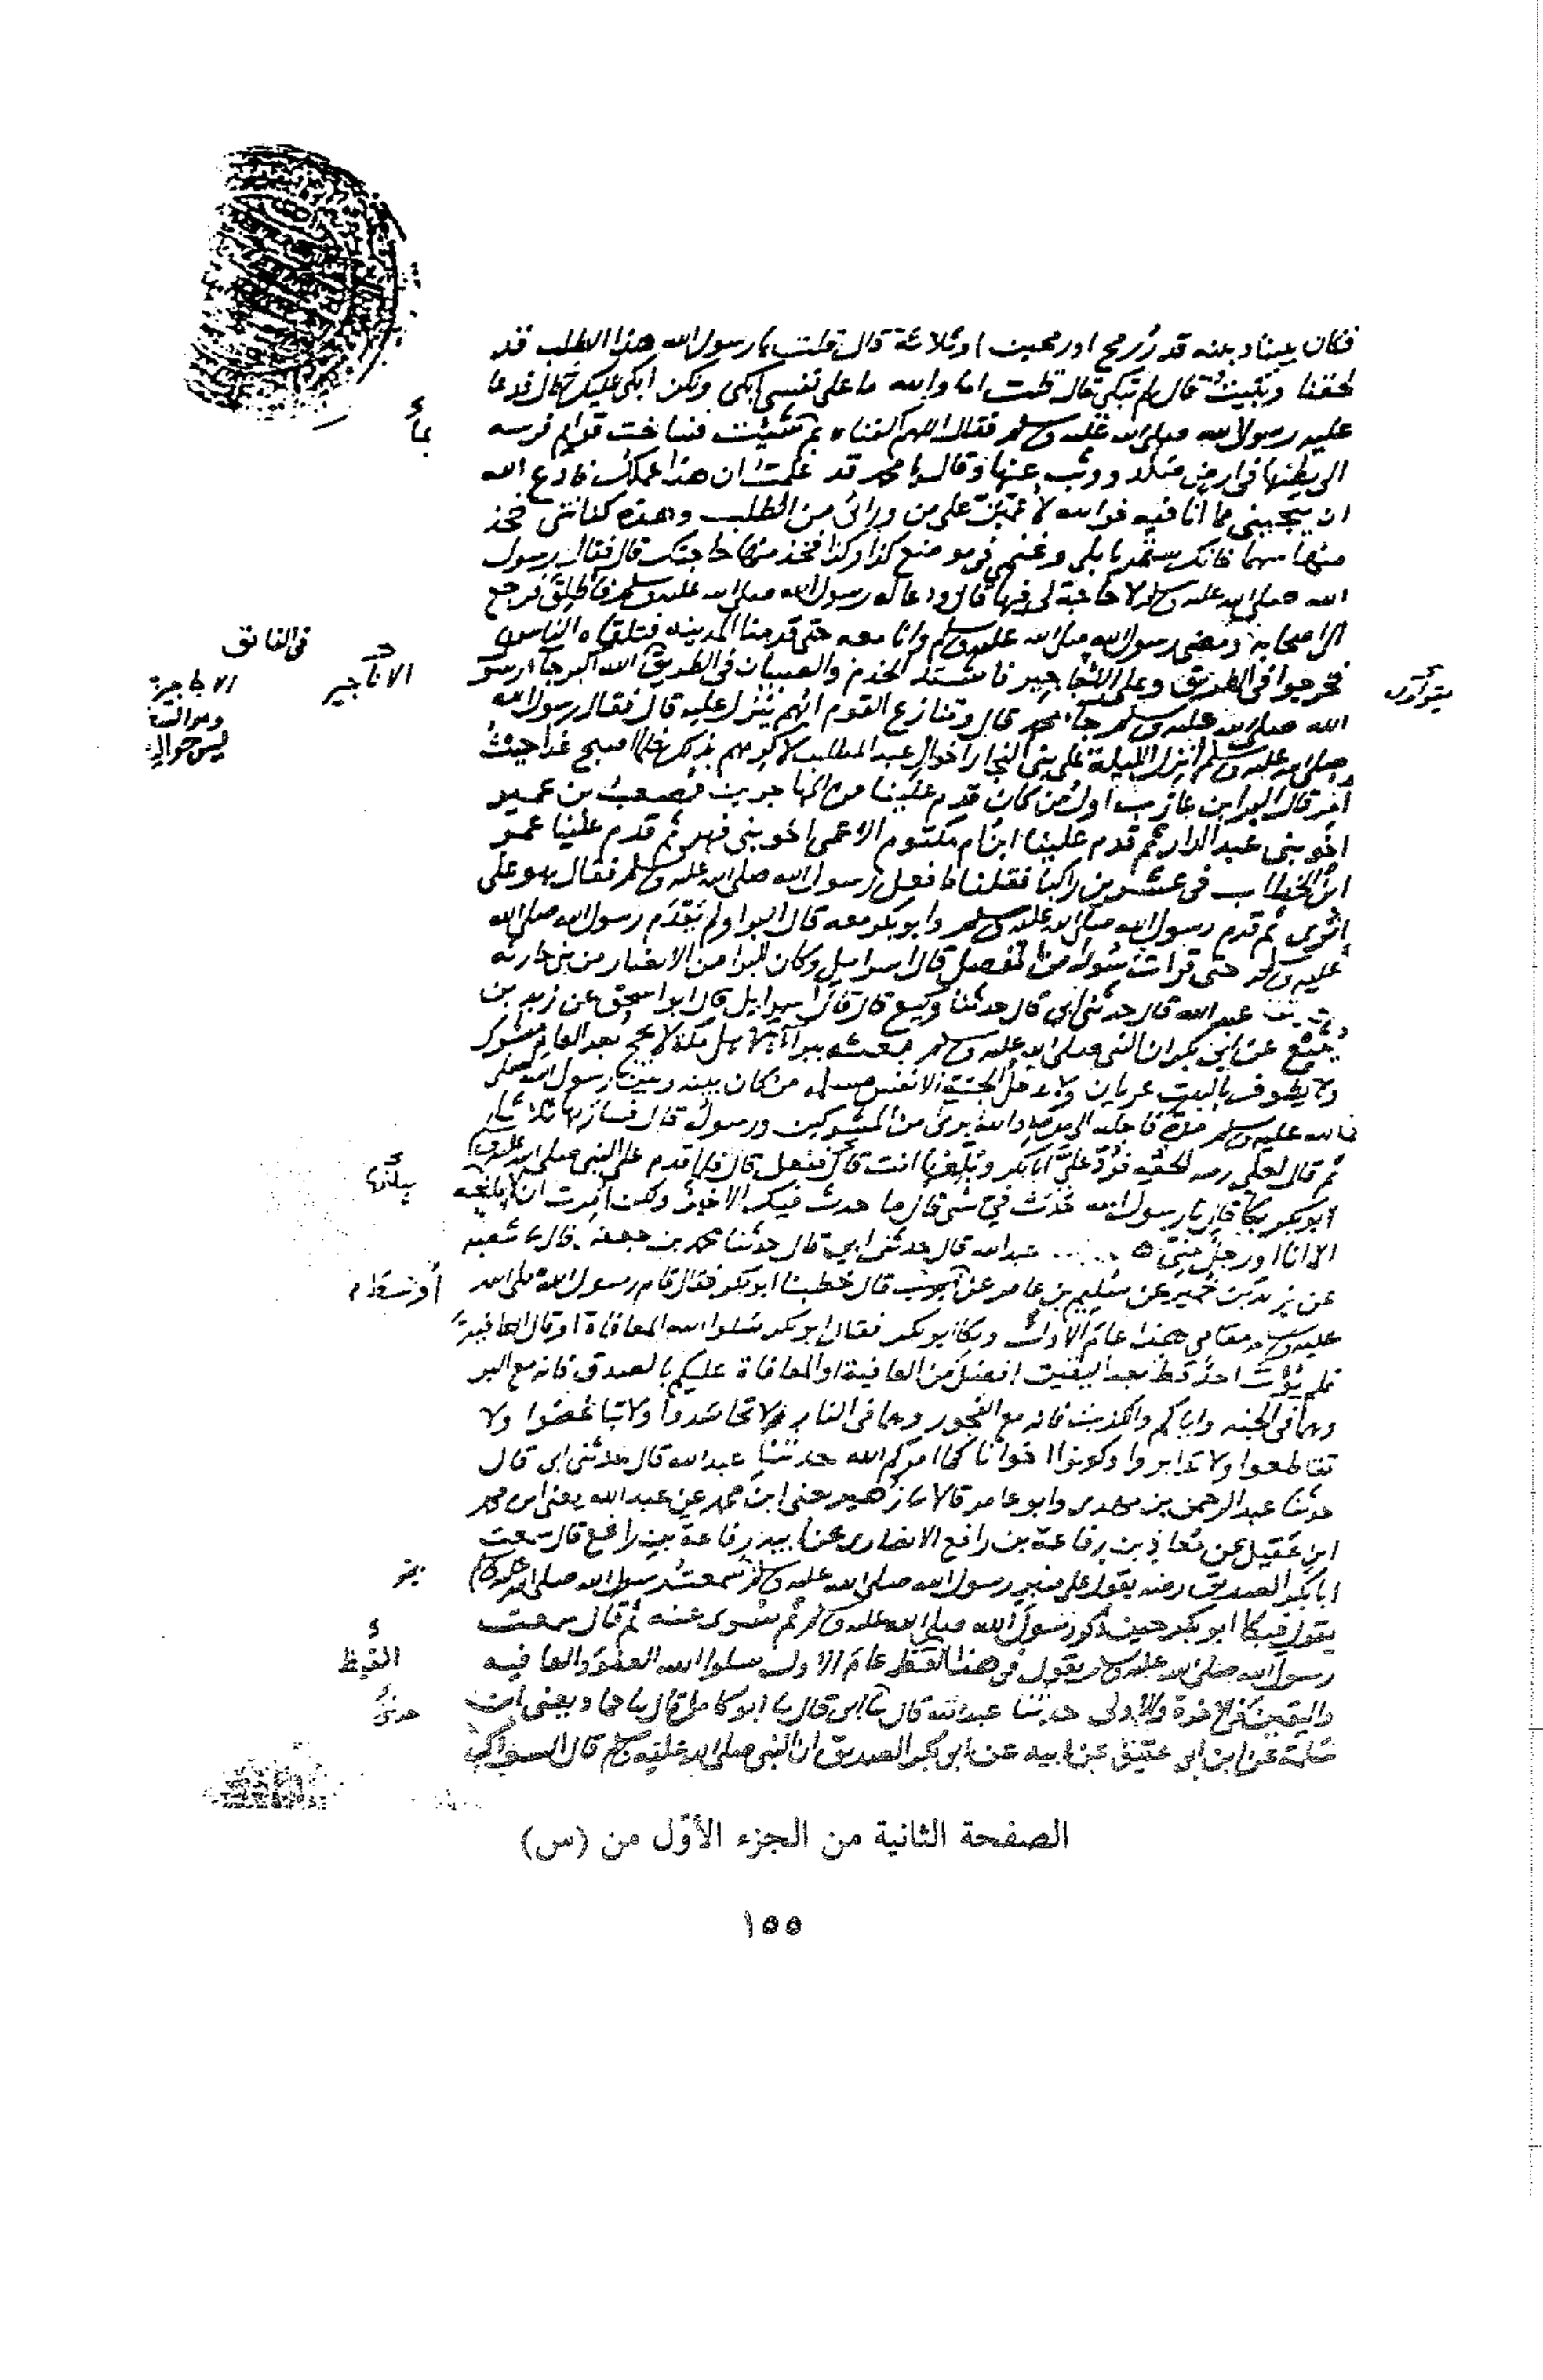 فكان بيننا وبينه قدر رمح او رمحين او ثلاثة قال قلت يا رسول الله هذا الطلب قد
لحقنا وبكيت قال لم تبكي قال قلت اما والله ما على نفسي ابكي ولكن ابكي عليك قال فدعا
عليه رسول الله صلى الله عليه وسلم فقال اللهم اكفناه بم شئت فساخت قوايم فرسه
بما
الى بطنها في ارض صلد ووثب عنها وقال يا محمد قد علمت ان هذا عملك فادع الله
ان ينجيني مما انا فيه فوالله لاعمين على من ورائي من الطلب وهذه كنانتي فخذ
منها سهما فانك ستمر بابلي وغنمي في موضع كذا وكذا فخذ منها حاجتك قال فقال رسول
الله صلى الله عليه وسلم لا حاجة لي فيها قال ودعا له رسول الله صلى الله عليه وسلم فاطلق فرجع
الى اصحابه ومضى رسول الله صلى الله عليه وسلم وانا معه حتى قدمنا المدينة فتلقاه الناس
في الفائق
فخرجوا في الطريق وعلى الاجاجير فاشتد الخدم والصبيان في الطريق الله اكبر جاء رسول
الاناجير
الله صلى الله عليه وسلم جاء محمد قال وتنازع القوم ايهم ينزل عليه قال فقال رسول الله
صلى الله عليه وسلم انزل الليلة على بني النجار اخوال عبد المطلب لاكرمهم بذلك فلما اصبح غدا حيث
امر قال البرا بن عازب اول من كان قدم علينا من المهاجرين مصعب بن عمير
اخو بني عبد الدار ثم قدم علينا ابن ام مكتوم الاعمى اخو بني فهر ثم قدم علينا عمر
ابن الخطاب في عشرين راكبا فقلنا ما فعل رسول الله صلى الله عليه وسلم فقال هو على
اثري ثم قدم رسول الله صلى الله عليه وسلم وابو بكر معه قال البرا ولم يقدم رسول الله صلى الله
عليه وسلم حتى قرات سورا من المفصل قال اسرايل وكان البرا من الانصار من بني حارثة
عبد الله قال حدثني ابي قال حدثنا وكيع قال قال اسرايل قال ابو اسحق عن زيد بن
يثيع عن ابي بكر ان النبي صلى الله عليه وسلم بعثه ببراءة لاهل مكة لا يحج بعد العام مشرك
ولا يطوف بالبيت عريان ولا يدخل الجنة الا نفس مسلمة من كان بينه وبين رسول الله صلى
الله عليه وسلم مدة فاجله الى مدته والله بريء من المشركين ورسوله قال فسار بها ثلاثا
ثم قال لعلي رضه الحقه فرد علي ابا بكر وبلغها انت قال ففعل قال فلما قدم على النبي صلى الله عليه وسلم
ابو بكر بكا قال يا رسول الله حدث في شي قال ما حدث فيك الا خير ولكن امرت ان لا يبلغه
الا انا او رجل مني ه عبد الله قال حدثني ابي قال حدثنا محمد بن جعفر قال ثنا شعبه
عن يزيد بن خمير عن سليم بن عامر عن اوسط قال خطبنا ابو بكر فقال قام رسول الله صلى الله
عليه وسلم مقامي هذا عام الاول وبكا ابو بكر فقال ابو بكر سلوا الله المعافاة او قال العافية
فلم يؤت احد قط بعد اليقين افضل من العافية او المعافاة عليكم بالصدق فانه مع البر
وهما في الجنه واياكم والكذب فانه مع الفجور وهما في النار ولا تحاسدوا ولا تباغضوا ولا
تقاطعوا ولا تدابروا وكونوا اخوانا كما امركم الله حدثنا عبد الله قال حدثني ابي قال
حدثنا عبد الرحمن بن مهدي وابو عامر قالا ثنا زهير يعني ابن محمد عن عبد الله يعني ابن محمد
ابن عقيل عن معاذ بن رفاعة بن رافع الانصاري عن ابيه رفاعة بن رافع قال سمعت
ابا بكر الصديق رضه يقول على منبر رسول الله صلى الله عليه وسلم سمعت رسول الله صلى الله عليه وسلم
يقول فبكا ابو بكر حين ذكر رسول الله صلى الله عليه وسلم ثم سري عنه ثم قال سمعت
رسول الله صلى الله عليه وسلم يقول في هذا القيظ عام الاول سلوا الله العفو والعافيه
القيظ
واليقين في الاخرة والاولى حدثنا عبد الله قال ثنا ابي قال ثنا ابو كامل قال ثنا حماد يعني ابن
سلمة عن ابن ابي عتيق عن ابيه عن ابي بكر الصديق ان النبي صلى الله عليه وسلم قال السواك
الصفحة الثانية من الجزء الأوّل من (س)
١٥٥